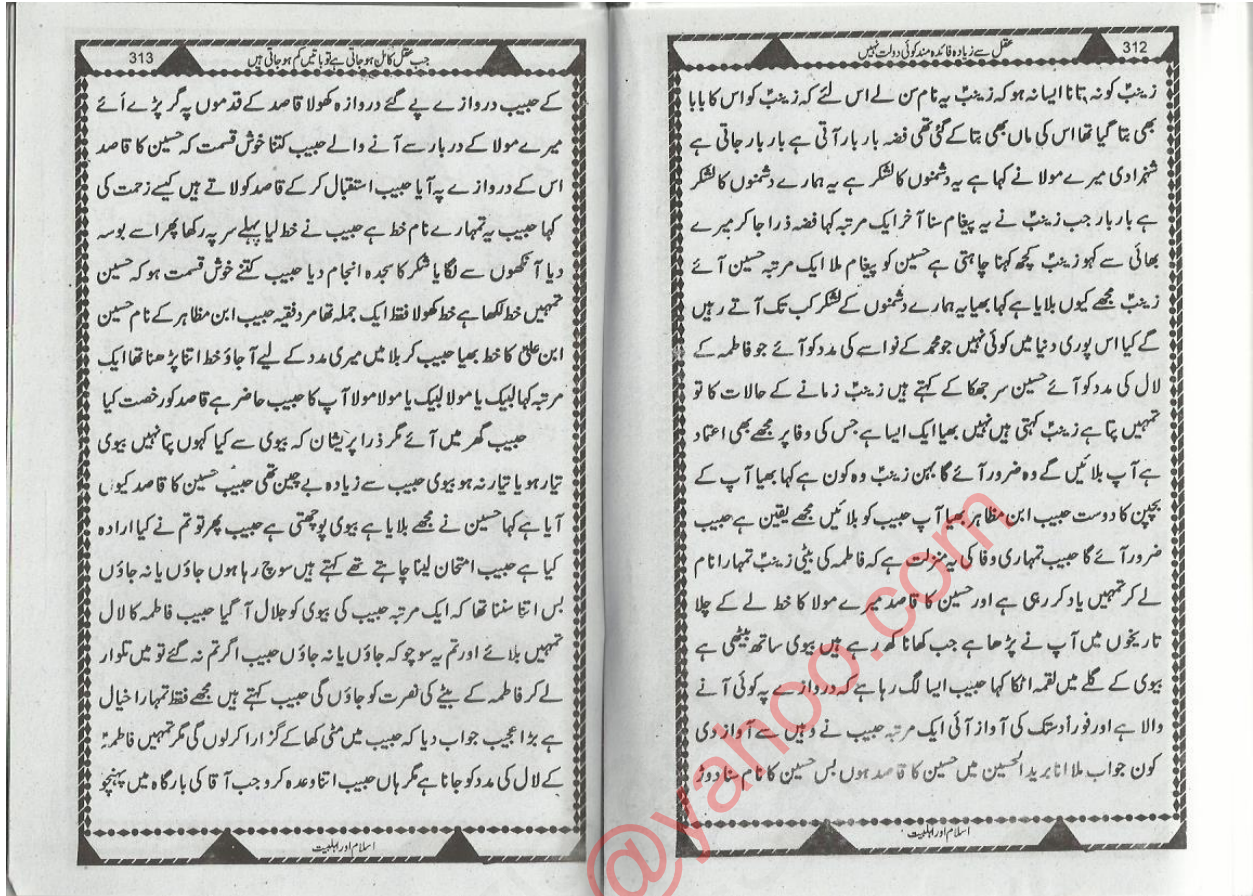 312
عقل سے زیادہ فائدہ مند کوئی دولت نہیں
زینبؑ کو نہ بتانا ایسا نہ ہو کہ زینبؑ یہ نام سن لے اس لئے کہ زینبؑ کو اس کا بابا
بھی بتا گیا تھا اس کی ماں بھی بتا کے گئی تھی فضہ بار بار آتی ہے بار بار جاتی ہے
شہزادی میرے مولا نے کہا ہے یہ دشمنوں کا لشکر ہے یہ ہمارے دشمنوں کا لشکر
ہے بار بار جب زینبؑ نے یہ پیغام سنا آخر ایک مرتبہ کہا فضہ ذرا جا کر میرے
بھائی سے کہو زینبؑ کچھ کہنا چاہتی ہے حسین کو پیغام ملا ایک مرتبہ حسین آئے
زینبؑ مجھے کیوں بلایا ہے کہا بھیا یہ ہمارے دشمنوں کے لشکر کب تک آتے رہیں
گے کیا اس پوری دنیا میں کوئی نہیں جو محمدؐ کے نواسے کی مدد کو آئے جو فاطمہ کے
لال کی مدد کو آئے حسین سر جھکا کے کہتے ہیں زینبؑ زمانے کے حالات کا تو
تمہیں پتا ہے زینبؑ کہتی ہیں نہیں بھیا ایک ایسا ہے جس کی وفا پر مجھے بھی اعتماد
ہے آپ بلائیں گے وہ ضرور آئے گا بہن زینبؑ وہ کون ہے کہا بھیا آپ کے
بچپن کا دوست حبیب ابن مظاہر بھیا آپ حبیب کو بلائیں مجھے یقین ہے حبیب
ضرور آئے گا حبیب تمہاری وفا کی یہ منزلت ہے کہ فاطمہ کی بیٹی زینبؑ تمہارا نام
لے کر تمہیں یاد کر رہی ہے اور حسین کا قاصد میرے مولا کا خط لے کے چلا
تاریخوں میں آپ نے پڑھا ہے جب کھانا کھ رہے ہیں بیوی ساتھ بیٹھی ہے
بیوی کے گلے میں لقمہ اٹکا کہا حبیب ایسا لگ رہا ہے کہ دروازے پہ کوئی آنے
والا ہے اور فوراً دستک کی آواز آئی ایک مرتبہ حبیب نے وہیں سے آواز دی
کون جواب ملا انا برید الحسین میں حسین کا قاصد ہوں بس حسین کا نام سنا دوڑ
اسلام اور اہلبیت
313
جب عقل کامل ہو جاتی ہے تو باتیں کم ہو جاتی ہیں
کے حبیب دروازے پے گئے دروازہ کھولا قاصد کے قدموں پہ گر پڑے اَئے
میرے مولا کے دربار سے آنے والے حبیب کتنا خوش قسمت کہ حسین کا قاصد
اس کے دروازے پہ آیا حبیب استقبال کر کے قاصد کو لاتے ہیں کیسے زحمت کی
کہا حبیب یہ تمہارے نام خط ہے حبیب نے خط لیا پہلے سر پہ رکھا پھر اسے بوسہ
دیا آنکھوں سے لگایا شکر کا سجدہ انجام دیا حبیب کتنے خوش قسمت ہو کہ حسین
تمہیں خط لکھا ہے خط کھولا فقط ایک جملہ تھا مرد فقیہ حبیب ابن مظاہر کے نام حسین
ابن علیؑ کا خط بھیا حبیب کربلا میں میری مدد کے لیے آ جاؤ خط اتنا پڑھنا تھا ایک
مرتبہ کہا لبیک یا مولا لبیک یا مولا مولا آپ کا حبیب حاضر ہے قاصد کو رخصت کیا
حبیب گھر میں آئے مگر ذرا پریشان کہ بیوی سے کیا کہوں پتا نہیں بیوی
تیار ہو یا تیار نہ ہو بیوی حبیب سے زیادہ بے چین تھی حبیب حسین کا قاصد کیوں
آیا ہے کہا حسین نے مجھے بلایا ہے بیوی پوچھتی ہے حبیب پھر تو تم نے کیا ارادہ
کیا ہے حبیب امتحان لینا چاہتے تھے کہتے ہیں سوچ رہا ہوں جاؤں یا نہ جاؤں
بس اتنا سننا تھا کہ ایک مرتبہ حبیب کی بیوی کو جلال آ گیا حبیب فاطمہ کا لال
تمہیں بلائے اور تم یہ سوچو کہ جاؤں یا نہ جاؤں حبیب اگر تم نہ گئے تو میں تلوار
لے کر فاطمہ کے بیٹے کی نصرت کو جاؤں گی حبیب کہتے ہیں مجھے فقط تمہارا خیال
ہے بڑا عجیب جواب دیا کہ حبیب میں مٹی کھا کے گزارا کر لوں گی مگر تمہیں فاطمہؑ
کے لال کی مدد کو جانا ہے مگر ہاں حبیب اتنا وعدہ کرو جب آقا کی بارگاہ میں پہنچو
اسلام اور اہلبیت
@yahoo.com